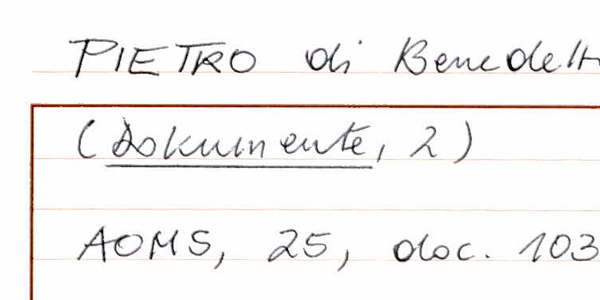 PIETRO di Benedett
(Dokumente, 2)
AOMS, 25, doc. 103